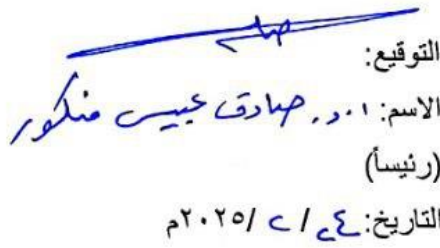 التوقيع:
الاسم: ا.د. صادق عبيس منكور
(رئيساً)
التاريخ: ٢٤ / ٢ / ٢٠٢٥م